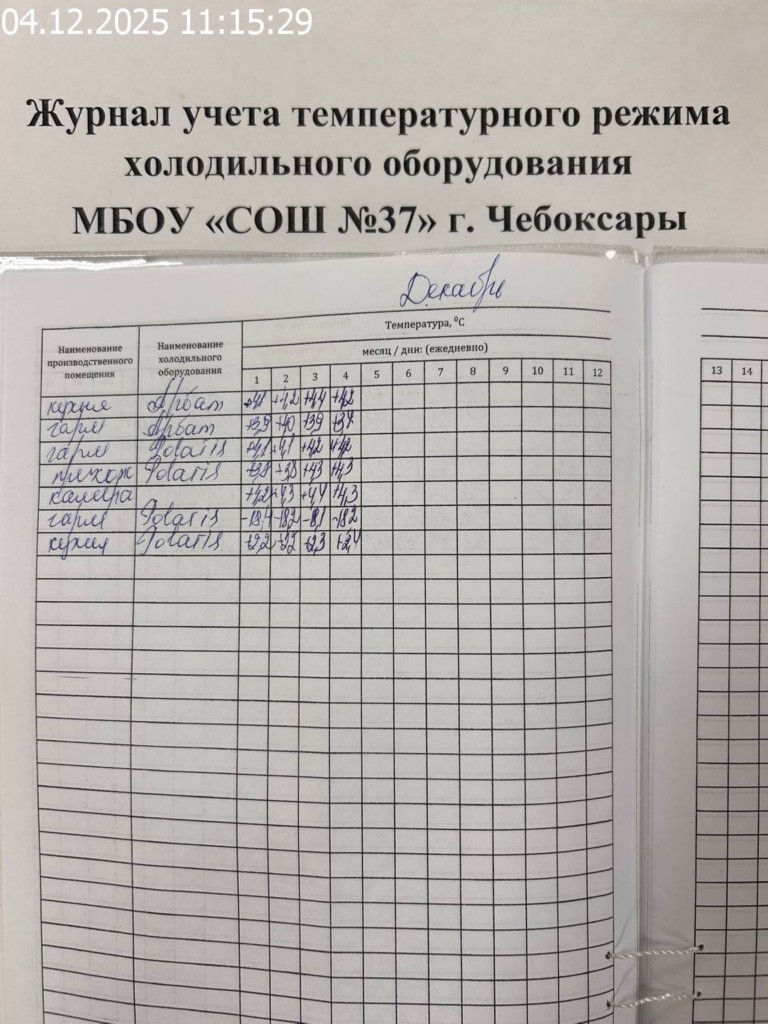 04.12.2025 11:15:29
Журнал учета температурного режима
холодильного оборудования
МБОУ «СОШ №37» г. Чебоксары
Декабрь
Наименование производственного помещения
Наименование холодильного оборудования
Температура, ⁰С
месяц / дни: (ежедневно)
1 2 3 4 5 6 7 8 9 10 11 12
13 14
кухня Арбат +4,2 +4,4 +4,2
гарм Арбат +3,9 +4,0 +3,9 +3,7
гарм Polaris +4,1 +4,2 +4,2
Polaris +3,8 +3,8 +4,3 +4,3
камера +4,2 +4,3 +4,4 +4,3
гарм Polaris -18,2 -18,2
кухня Polaris +2,2 +2,3 +2,4